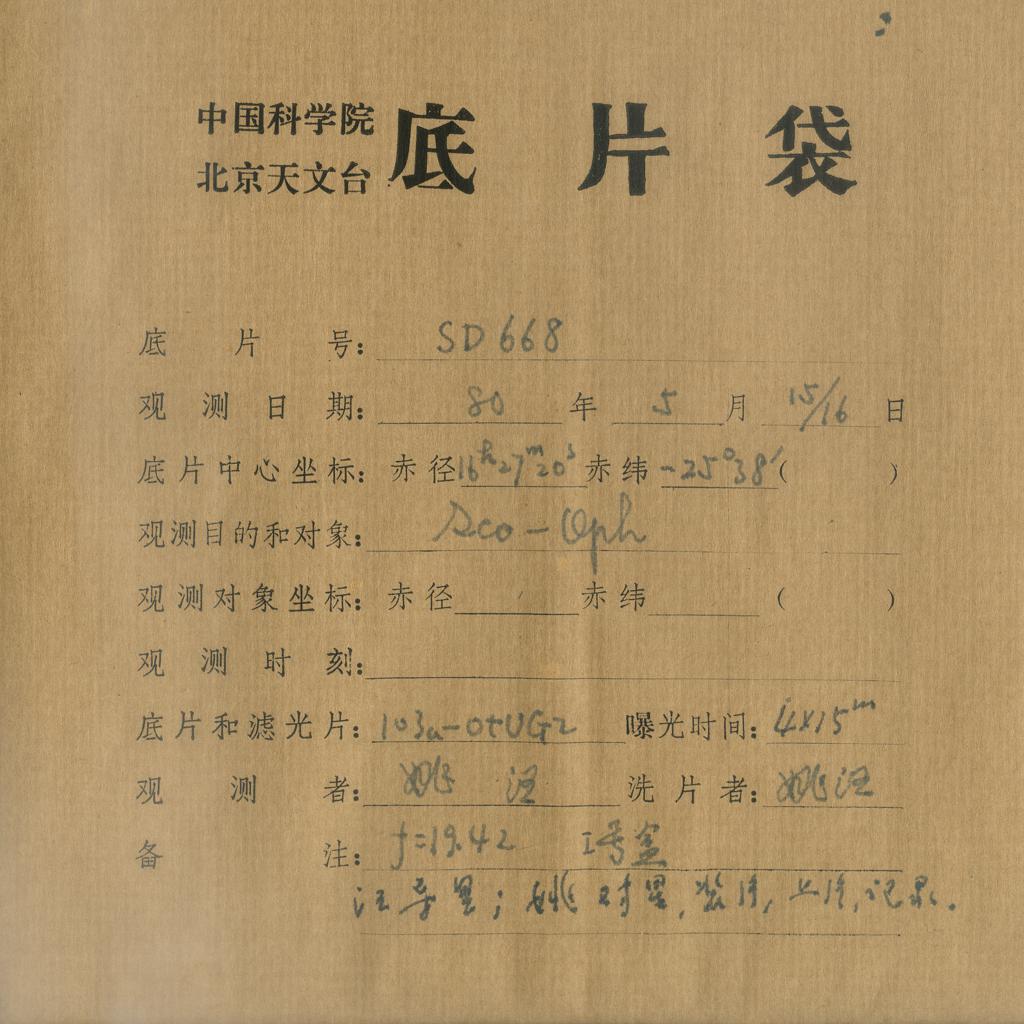 中国科学院
北京天文台
底片袋
底片号: SD668
观测日期: 80年5月15/16日
底片中心坐标: 赤径16h27m20s赤纬-25°38′( )
观测目的和对象: Sco-Oph
观测对象坐标: 赤径 赤纬 ( )
观测时刻:
底片和滤光片: 103a-O+UG2 曝光时间: 4x15m
观测者: 姚 汪 洗片者: 姚汪
备注: f=19.42 I号盒
汪导星; 姚对星, 装片, 上片, 记录.